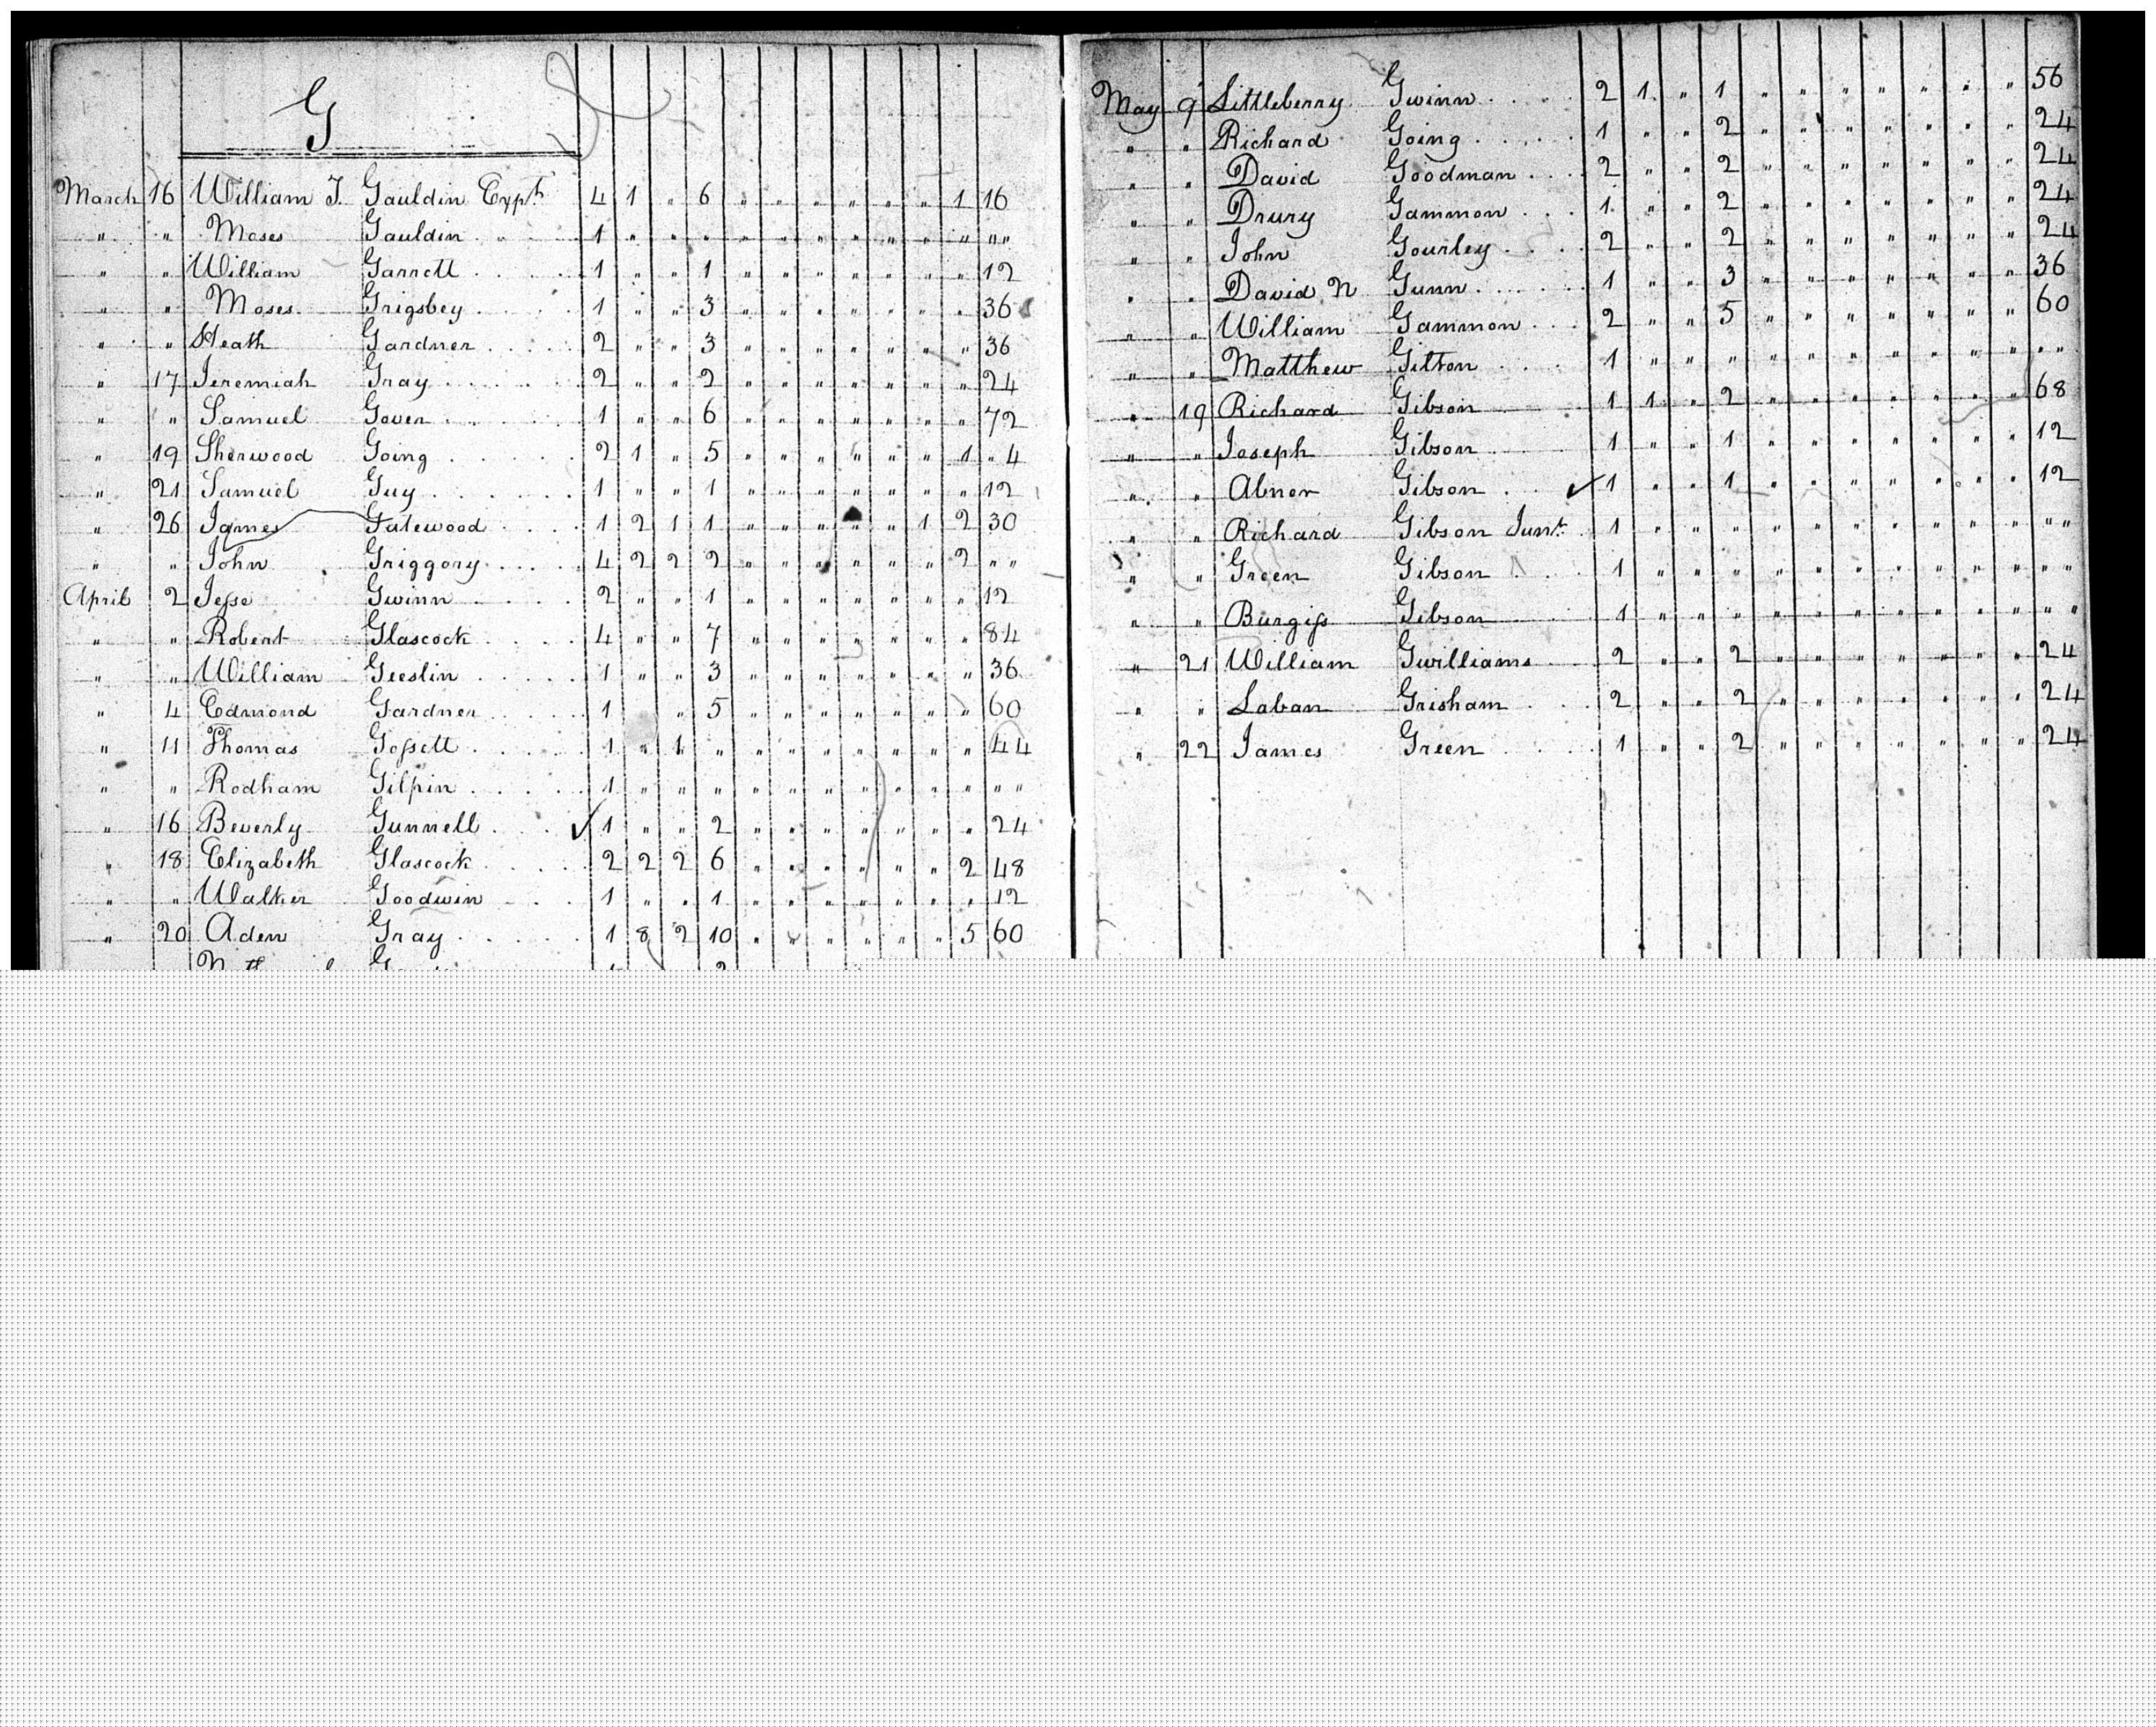 G
March 16 William J. Gauldin Expt 4 1 " 6 " " " " " " 1 16
" " Moses Gauldin 1 " " " " " " " " " " ""
" " William Garrett 1 " " 1 " " " " " " " 12
" " Moses Grigsbey 1 " " 3 " " " " " " " 36
" " Heath Gardner 2 " " 3 " " " " " " " 36
" 17 Jeremiah Gray 2 " " 2 " " " " " " " 24
" " Samuel Gover 1 " " 6 " " " " " " " 72
" 19 Sherwood Going 2 1 " 5 " " " " " " 1 " 4
" 21 Samuel Guy 1 " " 1 " " " " " " " 12
" 26 James Gatewood 1 2 1 1 " " " " " 1 2 30
" " John Griggory 4 2 2 2 " " " " " " 2 ""
April 2 Jesse Gwinn 2 " " 1 " " " " " " " 12
" " Robert Glascock 4 " " 7 " " " " " " " 84
" " William Geeslin 1 " " 3 " " " " " " " 36
" 4 Edmond Gardner 1 " 5 " " " " " " " 60
" 11 Thomas Gossett 1 " 1 " " " " " " " " 44
" " Rodham Gilpin 1 " " " " " " " " " " ""
" 16 Beverly Gunnell ✓ 1 " " 2 " " " " " " " 24
" 18 Elizabeth Glascock 2 2 2 6 " " " " " " 2 48
" " Walker Goodwin 1 " " 1 " " " " " " " 12
" 20 Aden Gray 1 8 2 10 " " " " " " 5 60
May 9 Littleberry Gwinn 2 1 " 1 " " " " " " " 56
" " Richard Going 1 " " 2 " " " " " " " 24
" " David Goodman 2 " " 2 " " " " " " " 24
" " Drury Gammon 1 " " 2 " " " " " " " 24
" " John Gourley 2 " " 2 " " " " " " " 24
" " David N Gunn 1 " " 3 " " " " " " " 36
" " William Gammon 2 " " 5 " " " " " " " 60
" " Matthew Gilton 1 " " " " " " " " " " ""
" 19 Richard Gibson 1 1 " 2 " " " " " " " 68
" " Joseph Gibson 1 " " 1 " " " " " " " 12
" " Abner Gibson ✓ 1 " " 1 " " " " " " " 12
" " Richard Gibson Junr. 1 " " " " " " " " " " ""
" " Green Gibson 1 " " " " " " " " " " ""
" " Burgiss Gibson 1 " " " " " " " " " " ""
" 21 William Gwilliams 2 " " 2 " " " " " " " 24
" " Laban Grisham 2 " " 2 " " " " " " " 24
" 22 James Green 1 " " 2 " " " " " " " 24